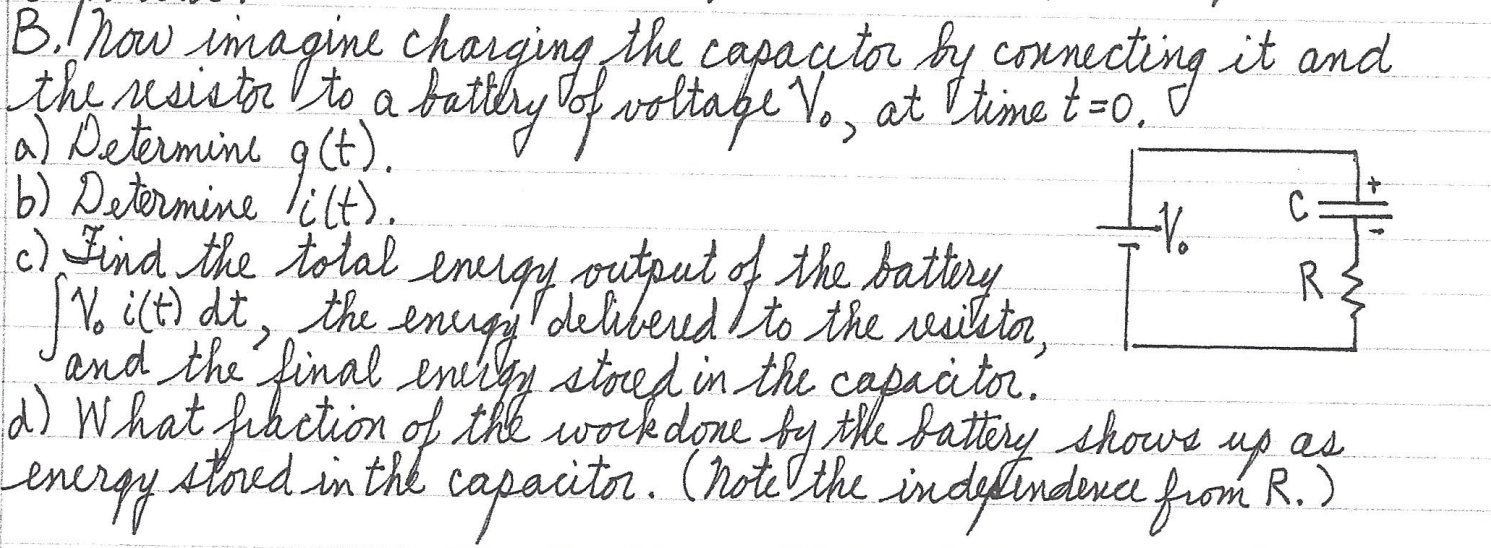 B. Now imagine charging the capacitor by connecting it and
the resistor to a battery of voltage V₀, at time t=0.
a) Determine q(t).
b) Determine i(t).
c) Find the total energy output of the battery
∫V₀ i(t) dt, the energy delivered to the resistor,
and the final energy stored in the capacitor.
d) What fraction of the work done by the battery shows up as
energy stored in the capacitor. (Note the independence from R.)
V₀
C
+
-
R